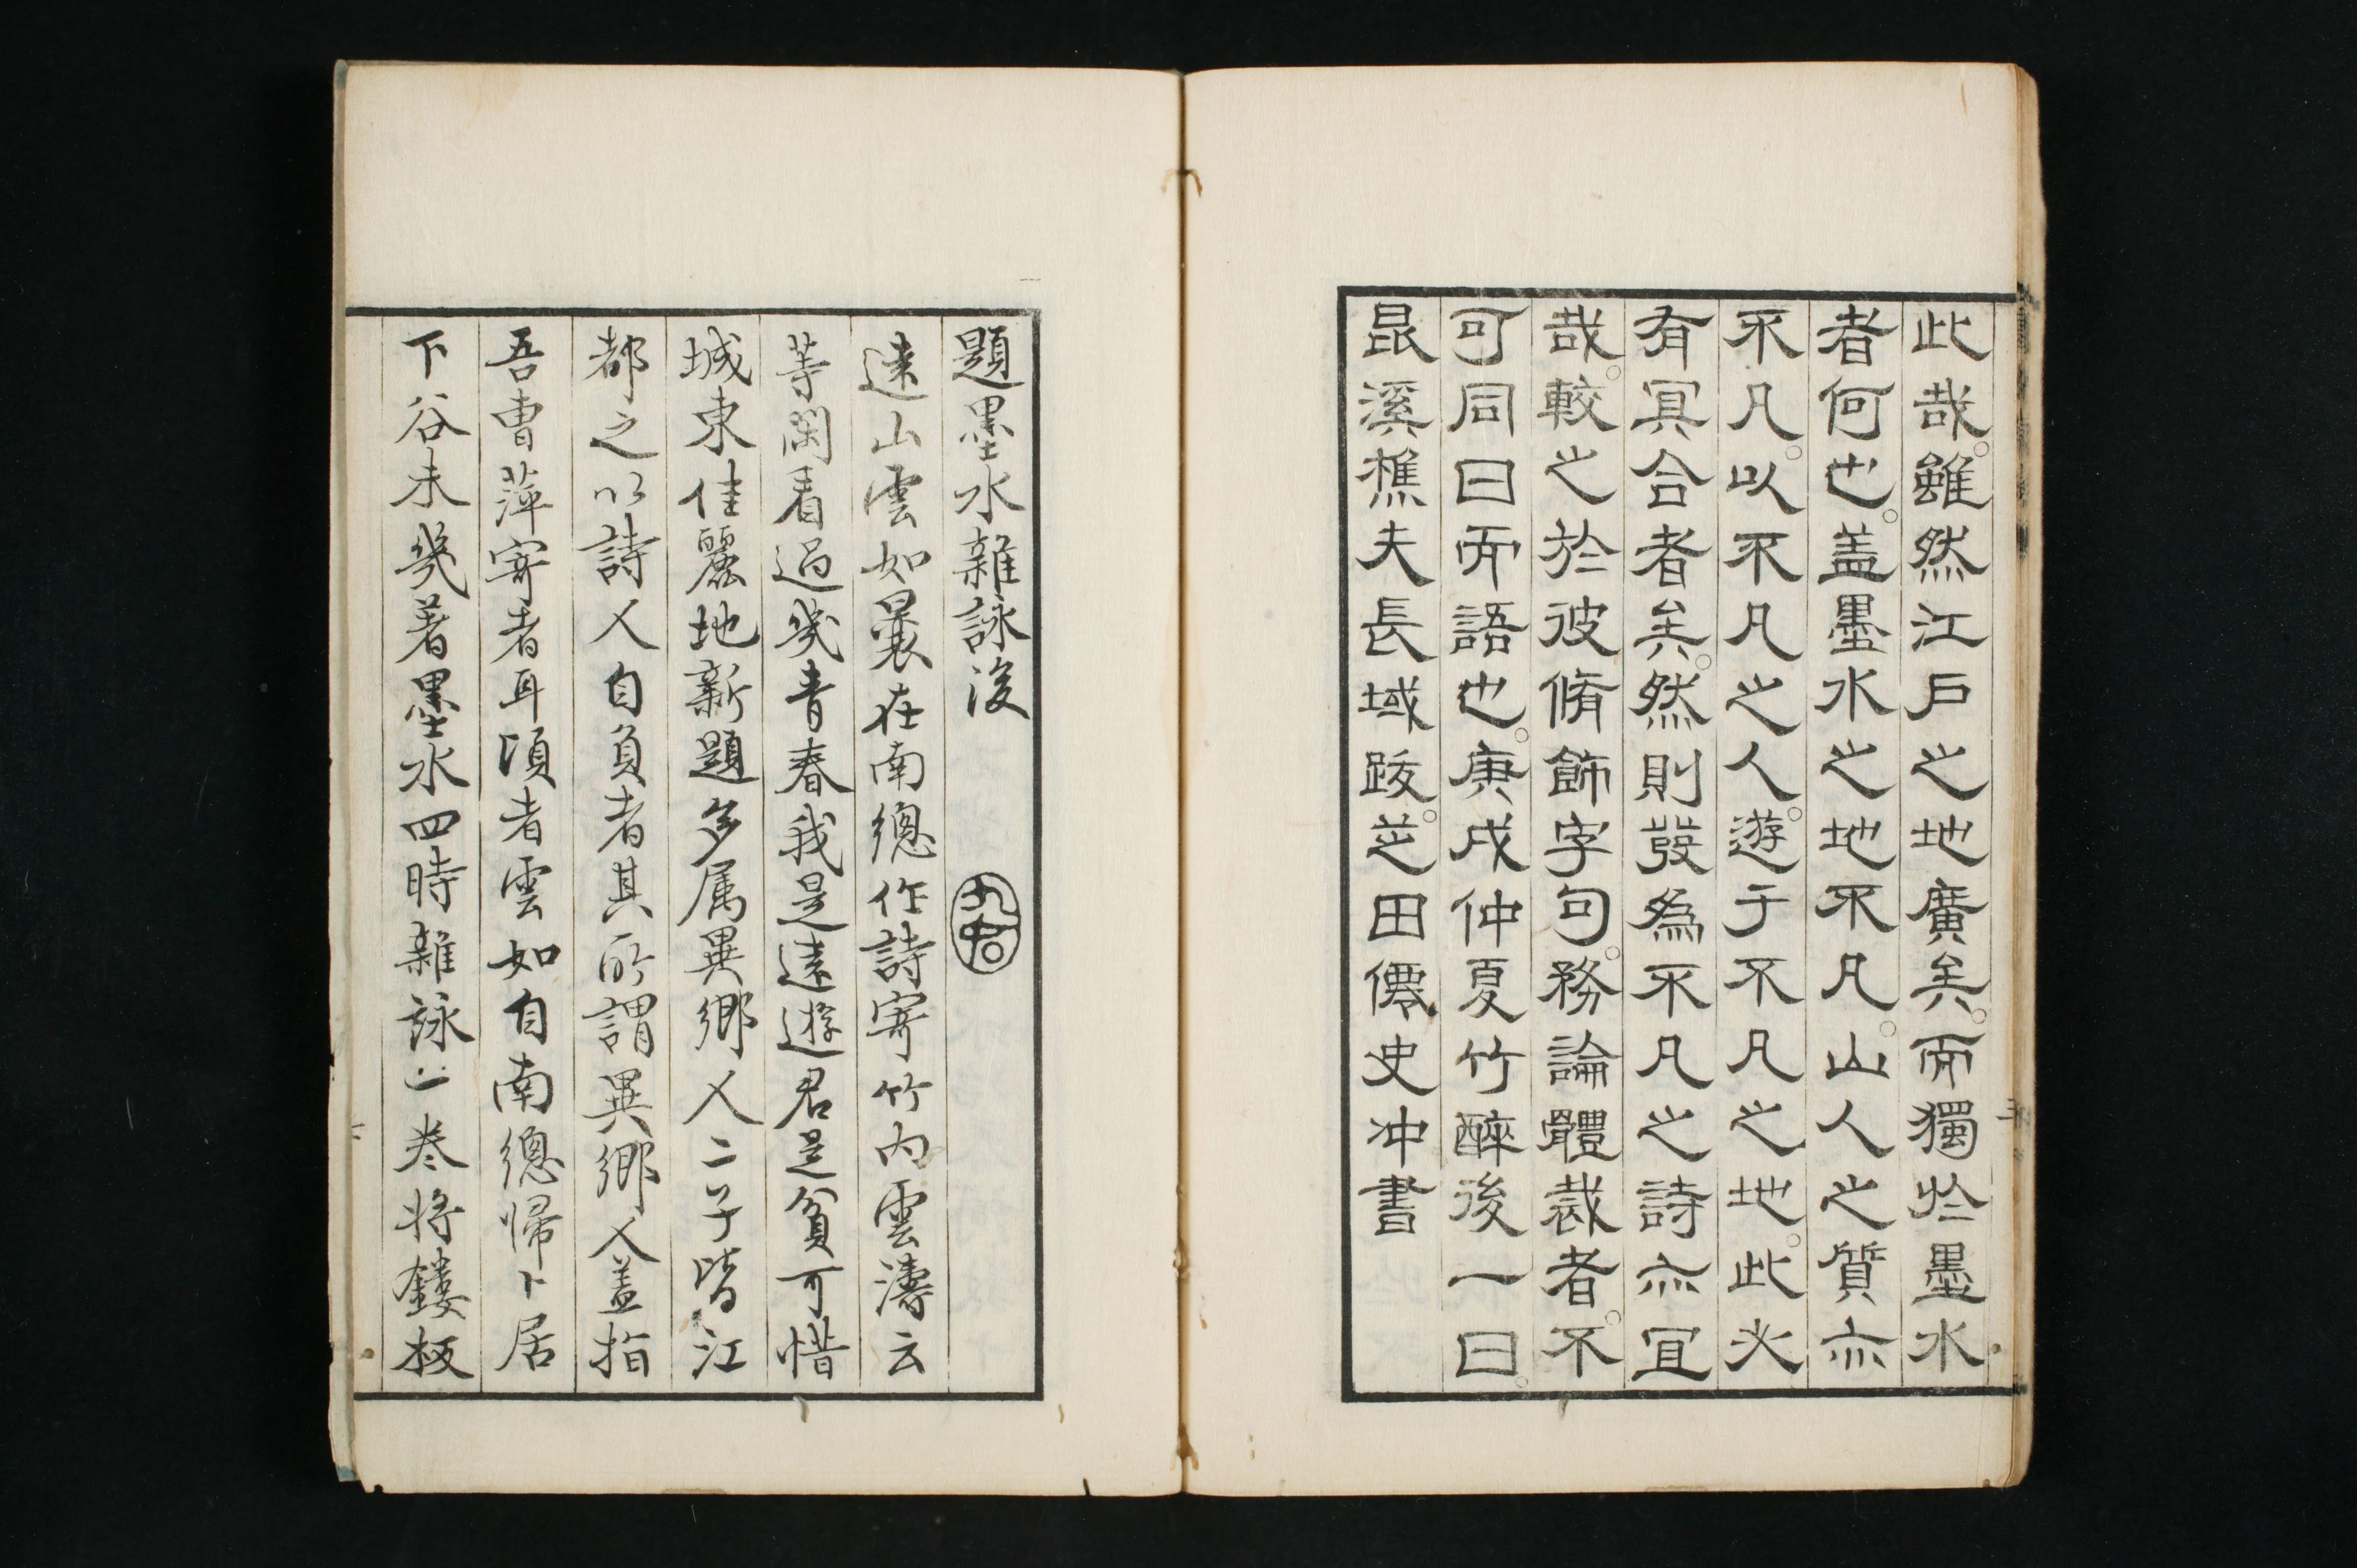 此哉。雖然江戶之地廣矣。而獨於墨水
者何也。蓋墨水之地不凡。山人之質亦
不凡。以不凡之人。遊于不凡之地。此必
有冥合者矣。然則發為不凡之詩亦宜
哉。較之於彼脩飾字句。務論體裁者。不
可同日而語也。庚戌仲夏竹醉後一日。
昆溪樵夫長域跋。芝田僊史冲書
題墨水雜詠後
遠山雲如曩在南總作詩寄竹內雲濤云
等閑看過幾青春我是遠遊君是貧可惜
城東佳麗地新題多属異鄉人二子皆江
都之以詩人自負者其所謂異鄉人蓋指
吾曹萍寄者耳頃者雲如自南總歸卜居
下谷未幾著墨水四時雜詠一卷將鏤板